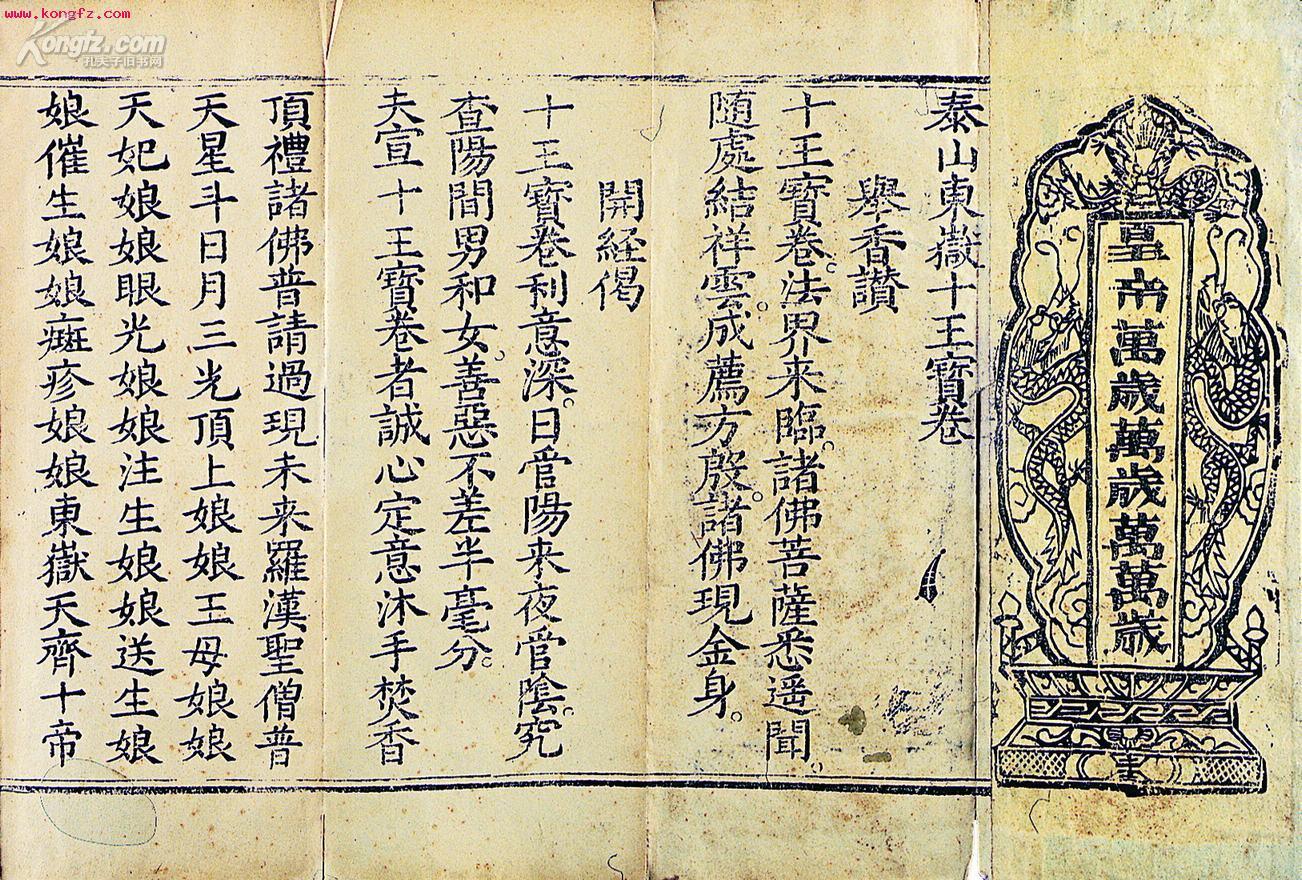 www.kongfz.com
Kongfz.com
孔夫子旧书网
皇帝萬歲萬歲萬萬歲
泰山東嶽十王寶卷
舉香讃
十王寶卷。法界来臨。諸佛菩薩悉遥聞。
随處結祥雲。成薦方殷。諸佛現金身。
開経偈
十王寶卷利意深。日管陽来夜管陰。究
查陽間男和女。善惡不差半毫分。
夫宣十王寶卷者誠心定意沐手焚香
頂禮諸佛普請過現未来羅漢聖僧普
天星斗日月三光頂上娘娘王母娘娘
天妃娘娘眼光娘娘注生娘娘送生娘
娘催生娘娘癍疹娘娘東嶽天齊十帝